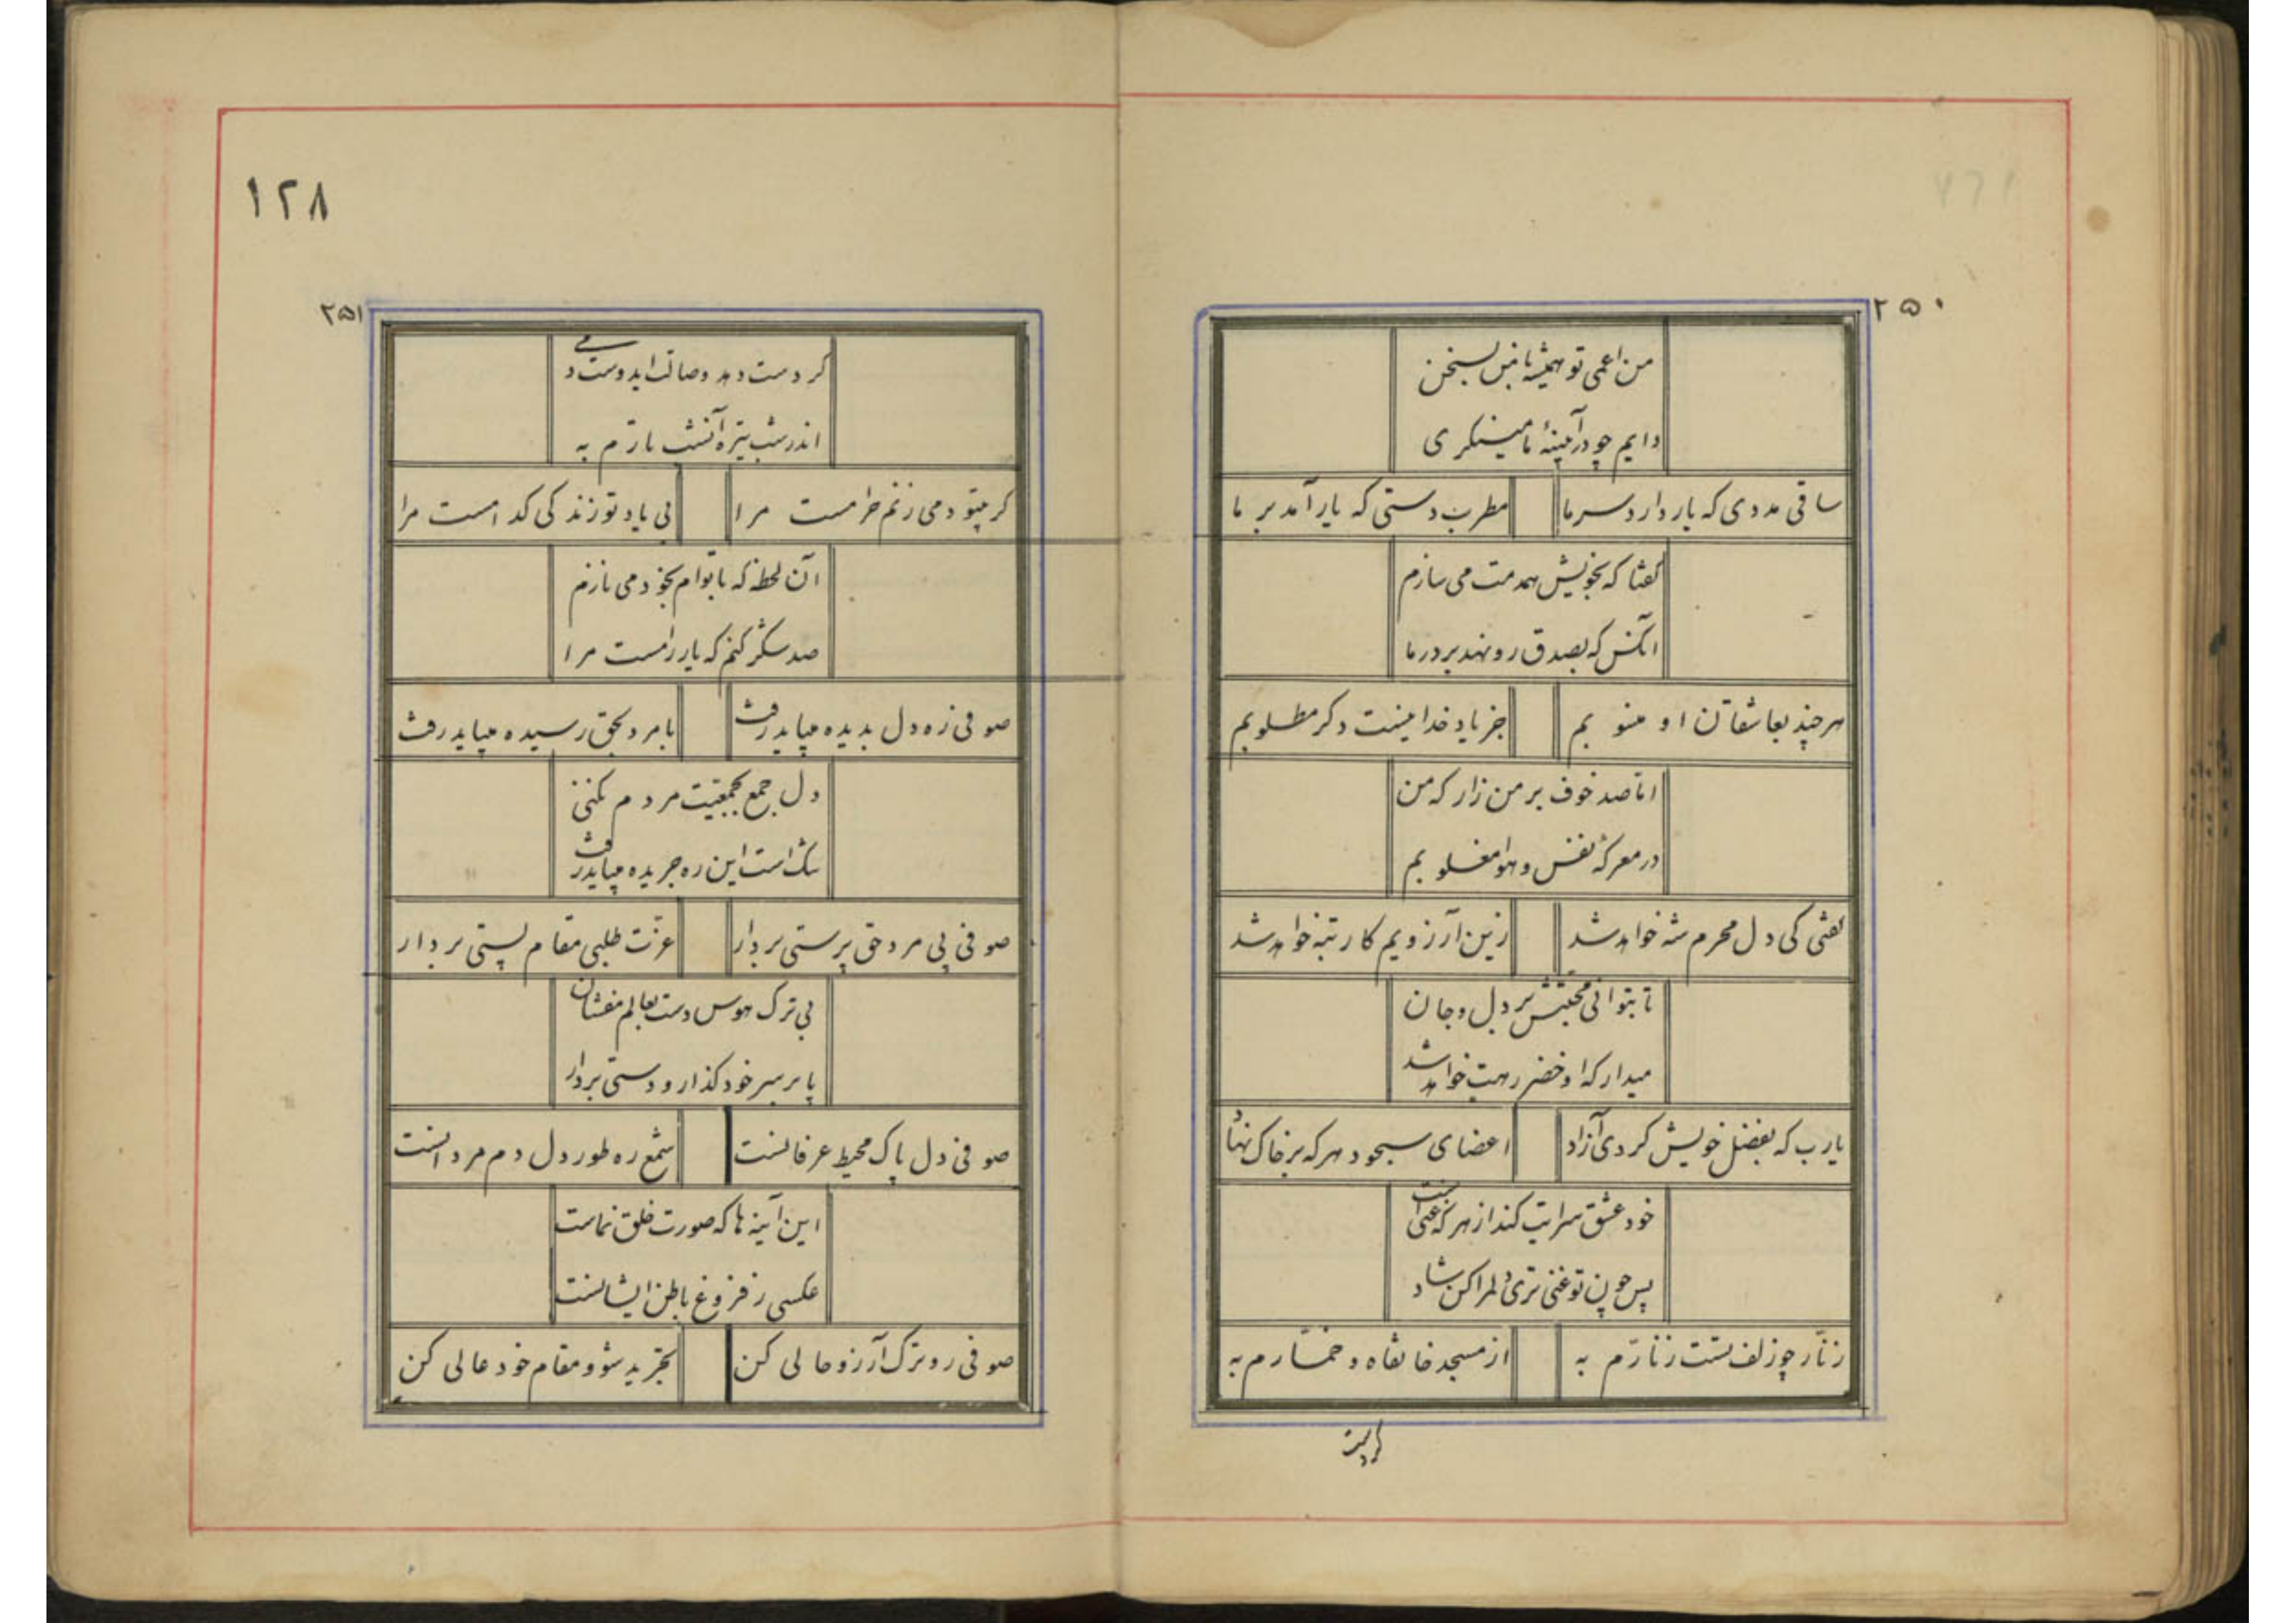 ۲۵۰
من اعمی تو همیشه با من بسخن
دایم چو در آیینهٔ ما مینگری
ساقی مددی که یار دارد سر ما
مطرب دستی که یار آمد بر ما
گفتا که بخویش همدمت می سازم
آنکس که بصدق رو نهد بر در ما
هر چند بعاشقان او منسوبم
جز یاد خدا نیست دگر مطلوبم
اما صد خوف بر من زار که من
در معرکهٔ نفس و هوا مغلوبم
گفتی کی دل محرم شه خواهد شد
زین آرزویم کار تبه خواهد شد
تا بتوانی محبتش بر دل و جان
میدار که او خضر رهت خواهد شد
یارب که بفضل خویش کردی آزاد
اعضای سجود هر که بر خاک نهاد
خود عشق سرایت کند از هر که غنی است
پس چون تو غنی تری دلم را کن شاد
زنار چو زلف تست زنارم به
از مسجد خانقاه و خمارم به
گر دست
۱۲۸
۲۵۱
گر دست دهد وصالت ایدوست دمی
اندر شب تیره آتشت بارم به
گر بیتو دمی زنم حرامست مرا
بی یاد تو زندگی کدامست مرا
آن لحظه که با توام بخود می نازم
صد شکر کنم که یار رامست مرا
صوفی زه دل بدیده میباید رفت
با مرد بحق رسیده میباید رفت
دل جمع بجمعیت مردم نکنی
تنگ است این ره جریده میباید رفت
صوفی پی مرد حق پرستی بردار
عزت طلبی مقام پستی بردار
بی ترک هوس دست بعالم مفشان
پا بر سر خود گذار و دستی بردار
صوفی دل پاک محیط عرفانست
شمع ره طور دل دم مردانست
این آینه ها که صورت خلق نماست
عکسی ز فروغ باطن ایشانست
صوفی رو ترک آرزو حالی کن
تجرید شو و مقام خود عالی کن